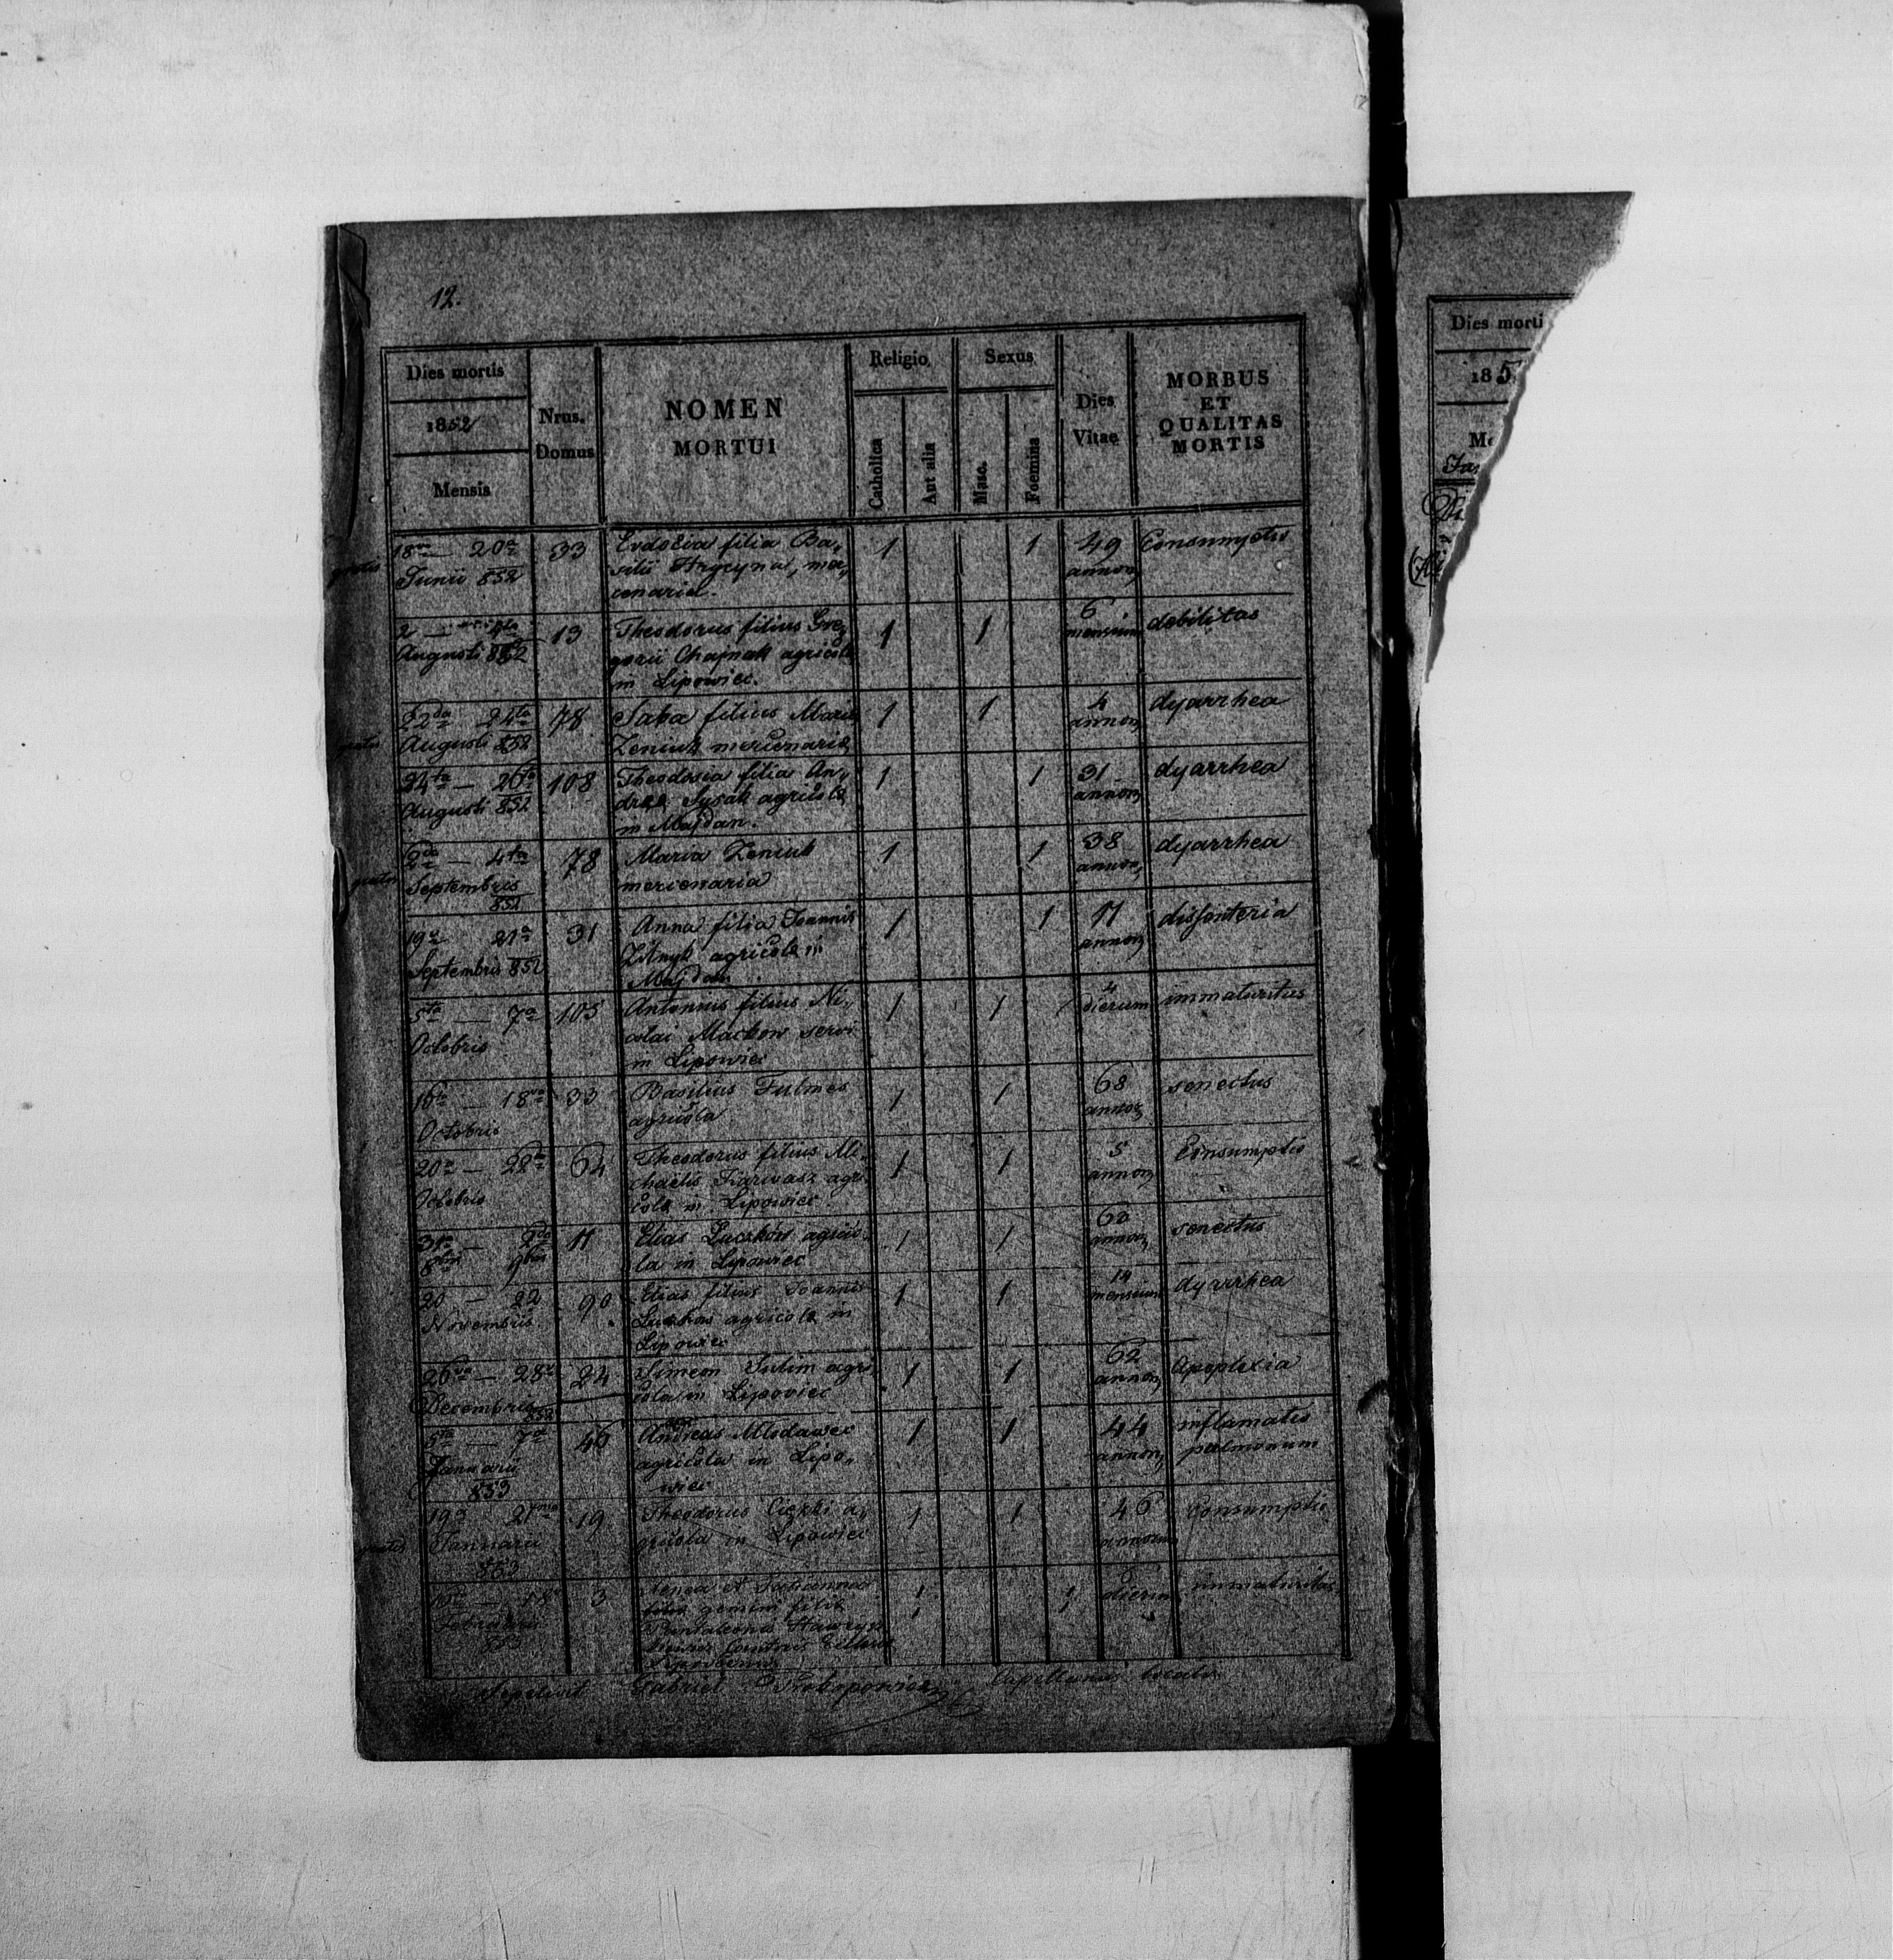 12.
Dies mortis
1852
Mensis
Nrus.
Domus
NOMEN
MORTUI
Religio
Catholica
Aut alia
Sexus
Masc.
Foemina
Dies
Vitae
MORBUS
ET
QUALITAS
MORTIS
gratis
18va — 20a
Junii 852
33
Evdocia filia Ba„
silii Hrycyna, mer„
cenariae.
1
1
49
annor
Consumptio
2 — 4ta
Augusti 852
13
Theodorus filius Gre„
gorii Chajnak agricolae
in Lipowiec.
1
1
6
mensium
debilitas
gratis
22da 24ta
Augusti 852
78
Saba filius Mariae
Zeniuk mercenariae
1
1
4
annor
dyarrhea
24ta — 26ta
Augusti 852
108
Theodosia filia An„
dreae Sysak agricolae
in Majdan.
1
1
31
annor
dyarrhea
gratis
2da — 4ta
Septembris
852
78
Maria Zeniuk
mercenaria
1
1
38
annor
dyarrhea
19a 21a
Septembris 852
31
Anna filia Joannis
Zilnyk agricolae in
Majdan
1
1
11
annor
disenteria
5ta — 7a
Octobris
105
Antonius filius Ni„
colai Mackow servi
in Lipowiec
1
1
4
dierum
immaturitas
16ta — 18va
Octobris
33
Basilius Fulmes
agricola
1
1
68
annor
senectus
20a — 22a
Octobris
64
Theodorus filius Mi„
chaelis Karwasz agri„
colae in Lipowiec.
1
1
5
annor
Consumptio
31a — 2da
8bris 9bris
11
Elias Luczkow agrico„
la in Lipowiec
1
1
60
annor
senectus
20 — 22
Novembris
90
Elias filius Joannis
Luczkow agricolae in
Lipowiec
1
1
14
mensium
dyarrhea
26ta — 28a
Decembris
852
24
Simeon Sulim agri„
cola in Lipowiec
1
1
62
annor
Apoplexia
5ta — 7a
Januarii
853
46
Andreas Mlodawec
agricola in Lipo„
wiec
1
1
44
annor
inflamatio
pulmonum
gratis
19a 21ma
Januarii
853
19
Theodorus Ciczki a„
gricola in Lipowiec
1
1
46
annorum
Consumptio
18
Februarii
853
3
et Juhianna
gemini filiae
Pantaleonis
1
1
1
1
dierum
immaturitas
Sepelivit Gabriel Prokopowicz Capellanus localis
Dies morti
185